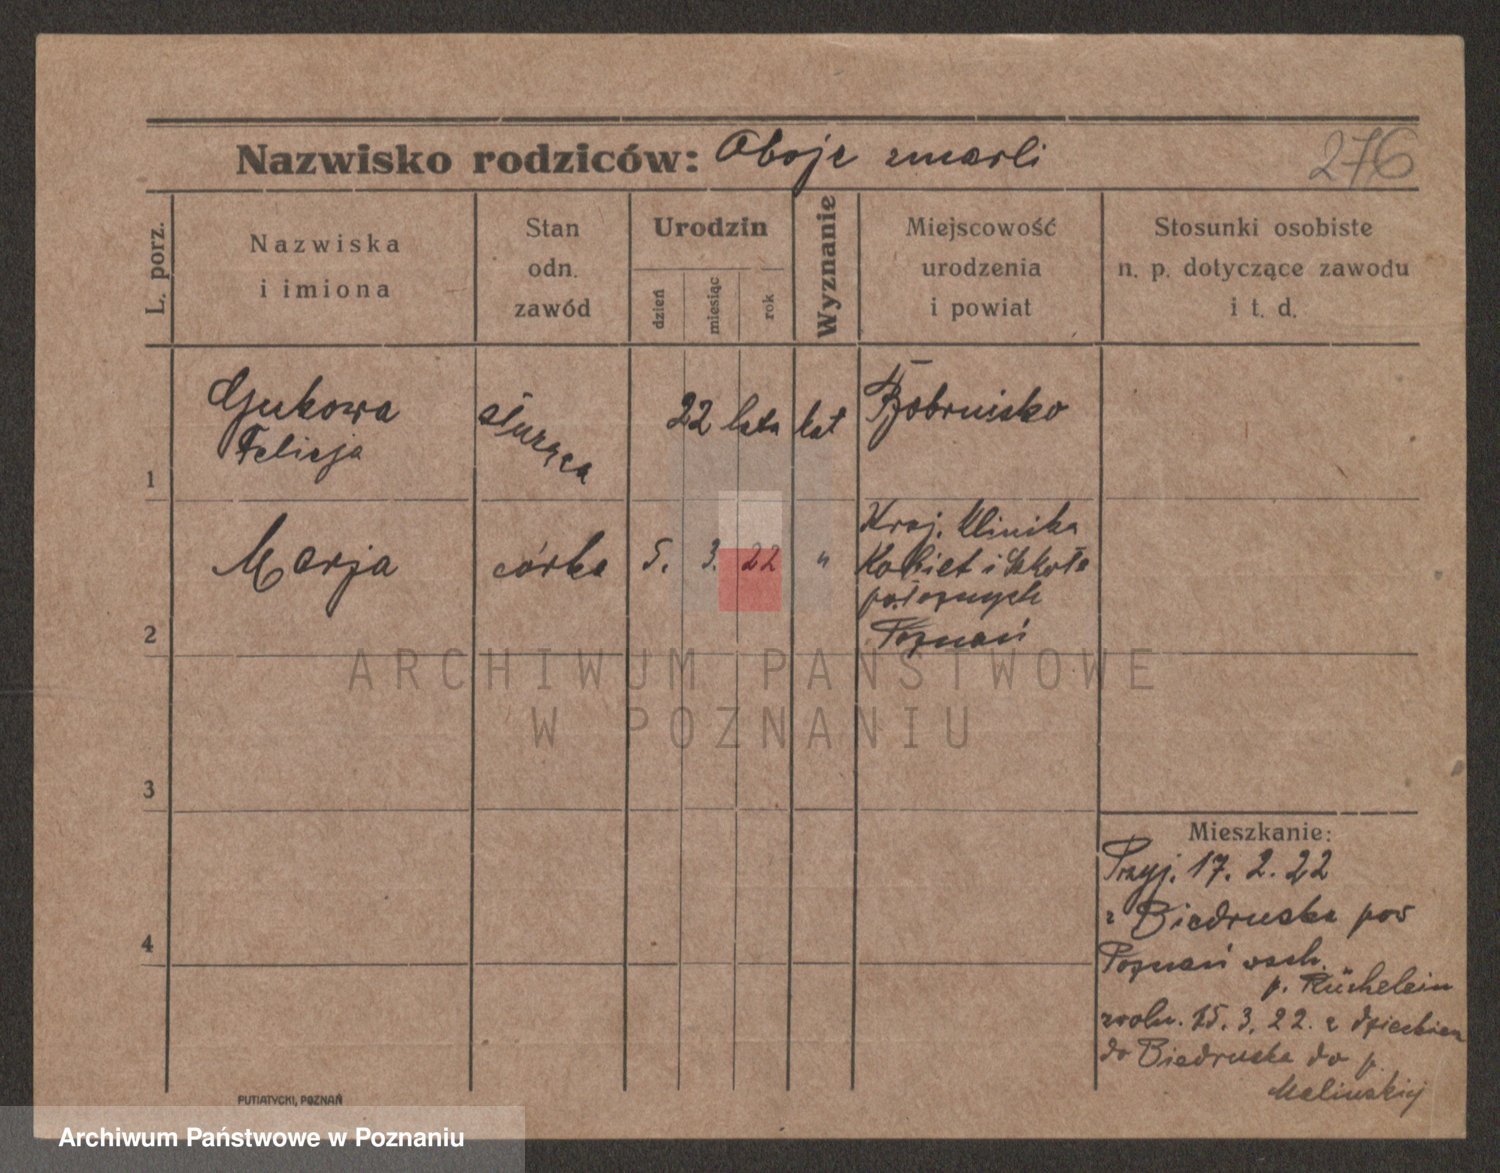 Nazwisko rodziców: Oboje zmarli
276
L. porz.
Nazwiska
i imiona
Stan
odn.
zawód
Urodzin
dzień
miesiąc
rok
Wyznanie
Miejscowość
urodzenia
i powiat
Stosunki osobiste
n. p. dotyczące zawodu
i t. d.
1
Felicja
służąca
22 lata
kat
2
Marja
córka
5. 3. 22
"
Kraj. Klinika
Kobiet i Szkoła
położnych
Poznań
3
4
Mieszkanie:
Przyj. 17. 2. 22
z Biedruska pow
Poznań wsch.
p. Rüchelein
zwoln. 15. 3. 22. z dzieckiem
do Biedruska do p.
Malinskiej
PUTIATYCKI, POZNAŃ
ARCHIWUM PAŃSTWOWE
W POZNANIU
Archiwum Państwowe w Poznaniu